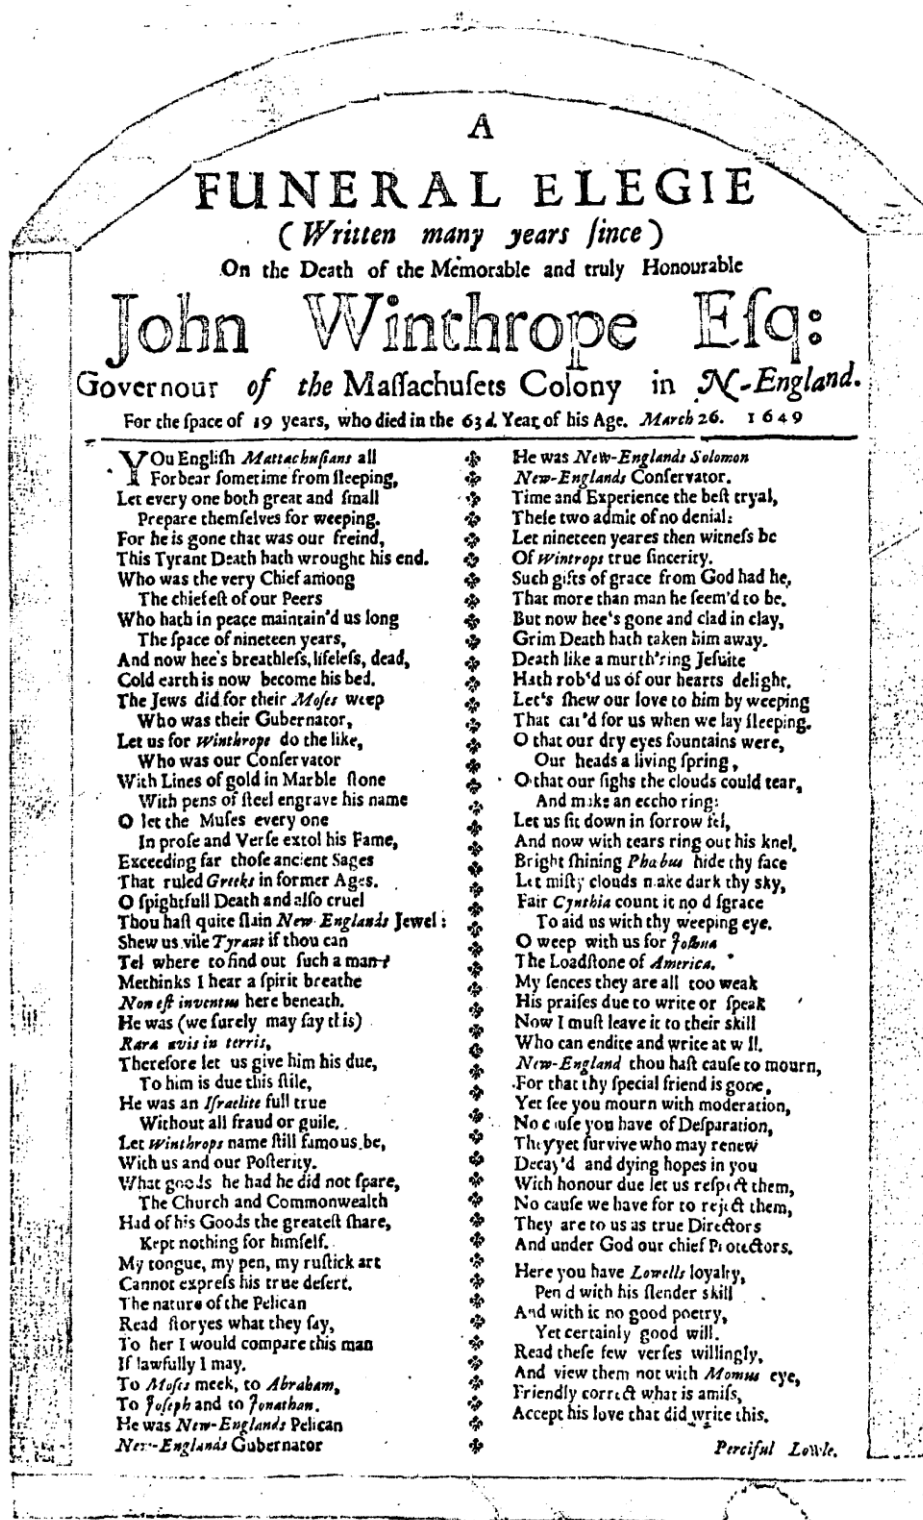 A
FUNERAL ELEGIE
(Written many years ſince)
On the Death of the Memorable and truly Honourable
John Winthrope Eſq:
Governour of the Maſſachuſets Colony in N-England.
For the ſpace of 19 years, who died in the 63d. Year of his Age. March 26. 1649
YOu Engliſh Mattachuſians all
Forbear ſometime from ſleeping,
Let every one both great and ſmall
Prepare themſelves for weeping.
For he is gone that was our freind,
This Tyrant Death hath wrought his end.
Who was the very Chief among
The chiefeſt of our Peers
Who hath in peace maintain'd us long
The ſpace of nineteen years,
And now hee's breathleſs, lifeleſs, dead,
Cold earth is now become his bed.
The Jews did for their Moſes weep
Who was their Gubernator,
Let us for Winthrope do the like,
Who was our Conſervator
With Lines of gold in Marble ſtone
With pens of ſteel engrave his name
O let the Muſes every one
In proſe and Verſe extol his Fame,
Exceeding far thoſe ancient Sages
That ruled Greeks in former Ages.
O ſpightfull Death and alſo cruel
Thou haſt quite ſlain New-Englands Jewel:
Shew us vile Tyrant if thou can
Tel where to find out ſuch a man?
Methinks I hear a ſpirit breathe
Non eſt inventus here beneath.
He was (we ſurely may ſay this)
Rara avis in terris,
Therefore let us give him his due,
To him is due this ſtile,
He was an Iſraelite full true
Without all fraud or guile.
Let Winthrops name ſtill famous be,
With us and our Poſterity.
What goods he had he did not ſpare,
The Church and Commonwealth
Had of his Goods the greateſt ſhare,
Kept nothing for himſelf.
My tongue, my pen, my ruſtick art
Cannot expreſs his true deſert.
The nature of the Pelican
Read ſtoryes what they ſay,
To her I would compare this man
If lawfully I may.
To Moſes meek, to Abraham,
To Joſeph and to Jonathan.
He was New-Englands Pelican
New-Englands Gubernator
He was New-Englands Solomon
New-Englands Conſervator.
Time and Experience the beſt tryal,
Theſe two admit of no denial:
Let nineteen yeares then witneſs be
Of Wintrops true ſincerity.
Such gifts of grace from God had he,
That more than man he ſeem'd to be.
But now hee's gone and clad in clay,
Grim Death hath taken him away.
Death like a murth'ring Jeſuite
Hath rob'd us of our hearts delight.
Let's ſhew our love to him by weeping
That car'd for us when we lay ſleeping.
O that our dry eyes fountains were,
Our heads a living ſpring,
O that our ſighs the clouds could tear,
And make an eccho ring:
Let us ſit down in ſorrow fel,
And now with tears ring out his knel.
Bright ſhining Phabus hide thy face
Let miſty clouds make dark thy sky,
Fair Cynthia count it no diſgrace
To aid us with thy weeping eye.
O weep with us for Joſhua
The Loadſtone of America.
My ſences they are all too weak
His praiſes due to write or ſpeak
Now I muſt leave it to their skill
Who can endite and write at will.
New-England thou haſt cauſe to mourn,
For that thy ſpecial friend is gone,
Yet ſee you mourn with moderation,
No cauſe you have of Deſparation,
They yet ſurvive who may renew
Decay'd and dying hopes in you
With honour due let us reſpect them,
No cauſe we have for to reject them,
They are to us as true Directors
And under God our chief Protectors.
Here you have Lowells loyalty,
Pen'd with his ſlender skill
And with it no good poetry,
Yet certainly good will.
Read theſe few verſes willingly,
And view them not with Momus eye,
Friendly correct what is amiſs,
Accept his love that did write this.
Perciful Lowle.